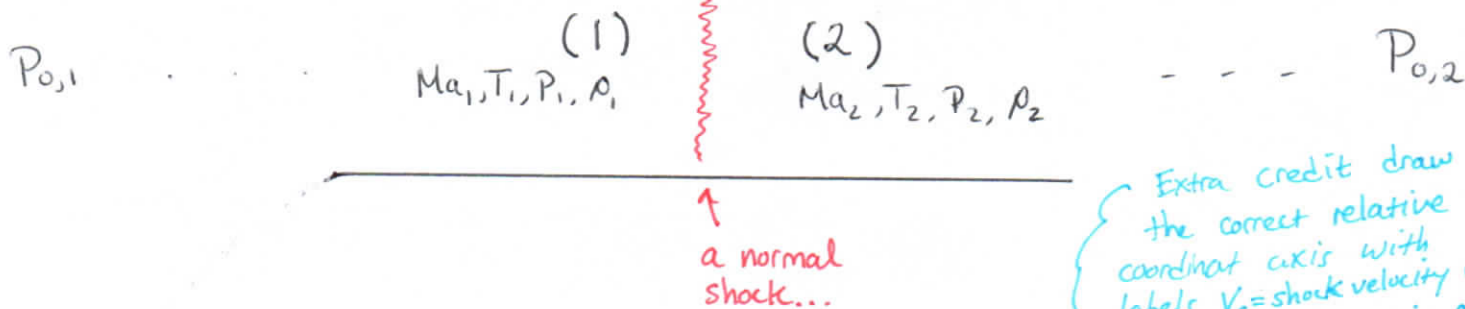 P0,1 . . . (1) (2) - - - P0,2
Ma1, T1, P1, ρ1 Ma2, T2, P2, ρ2
a normal
shock...
Extra credit draw
the correct relative
coordinat axis with
labels Vs = shock velocity